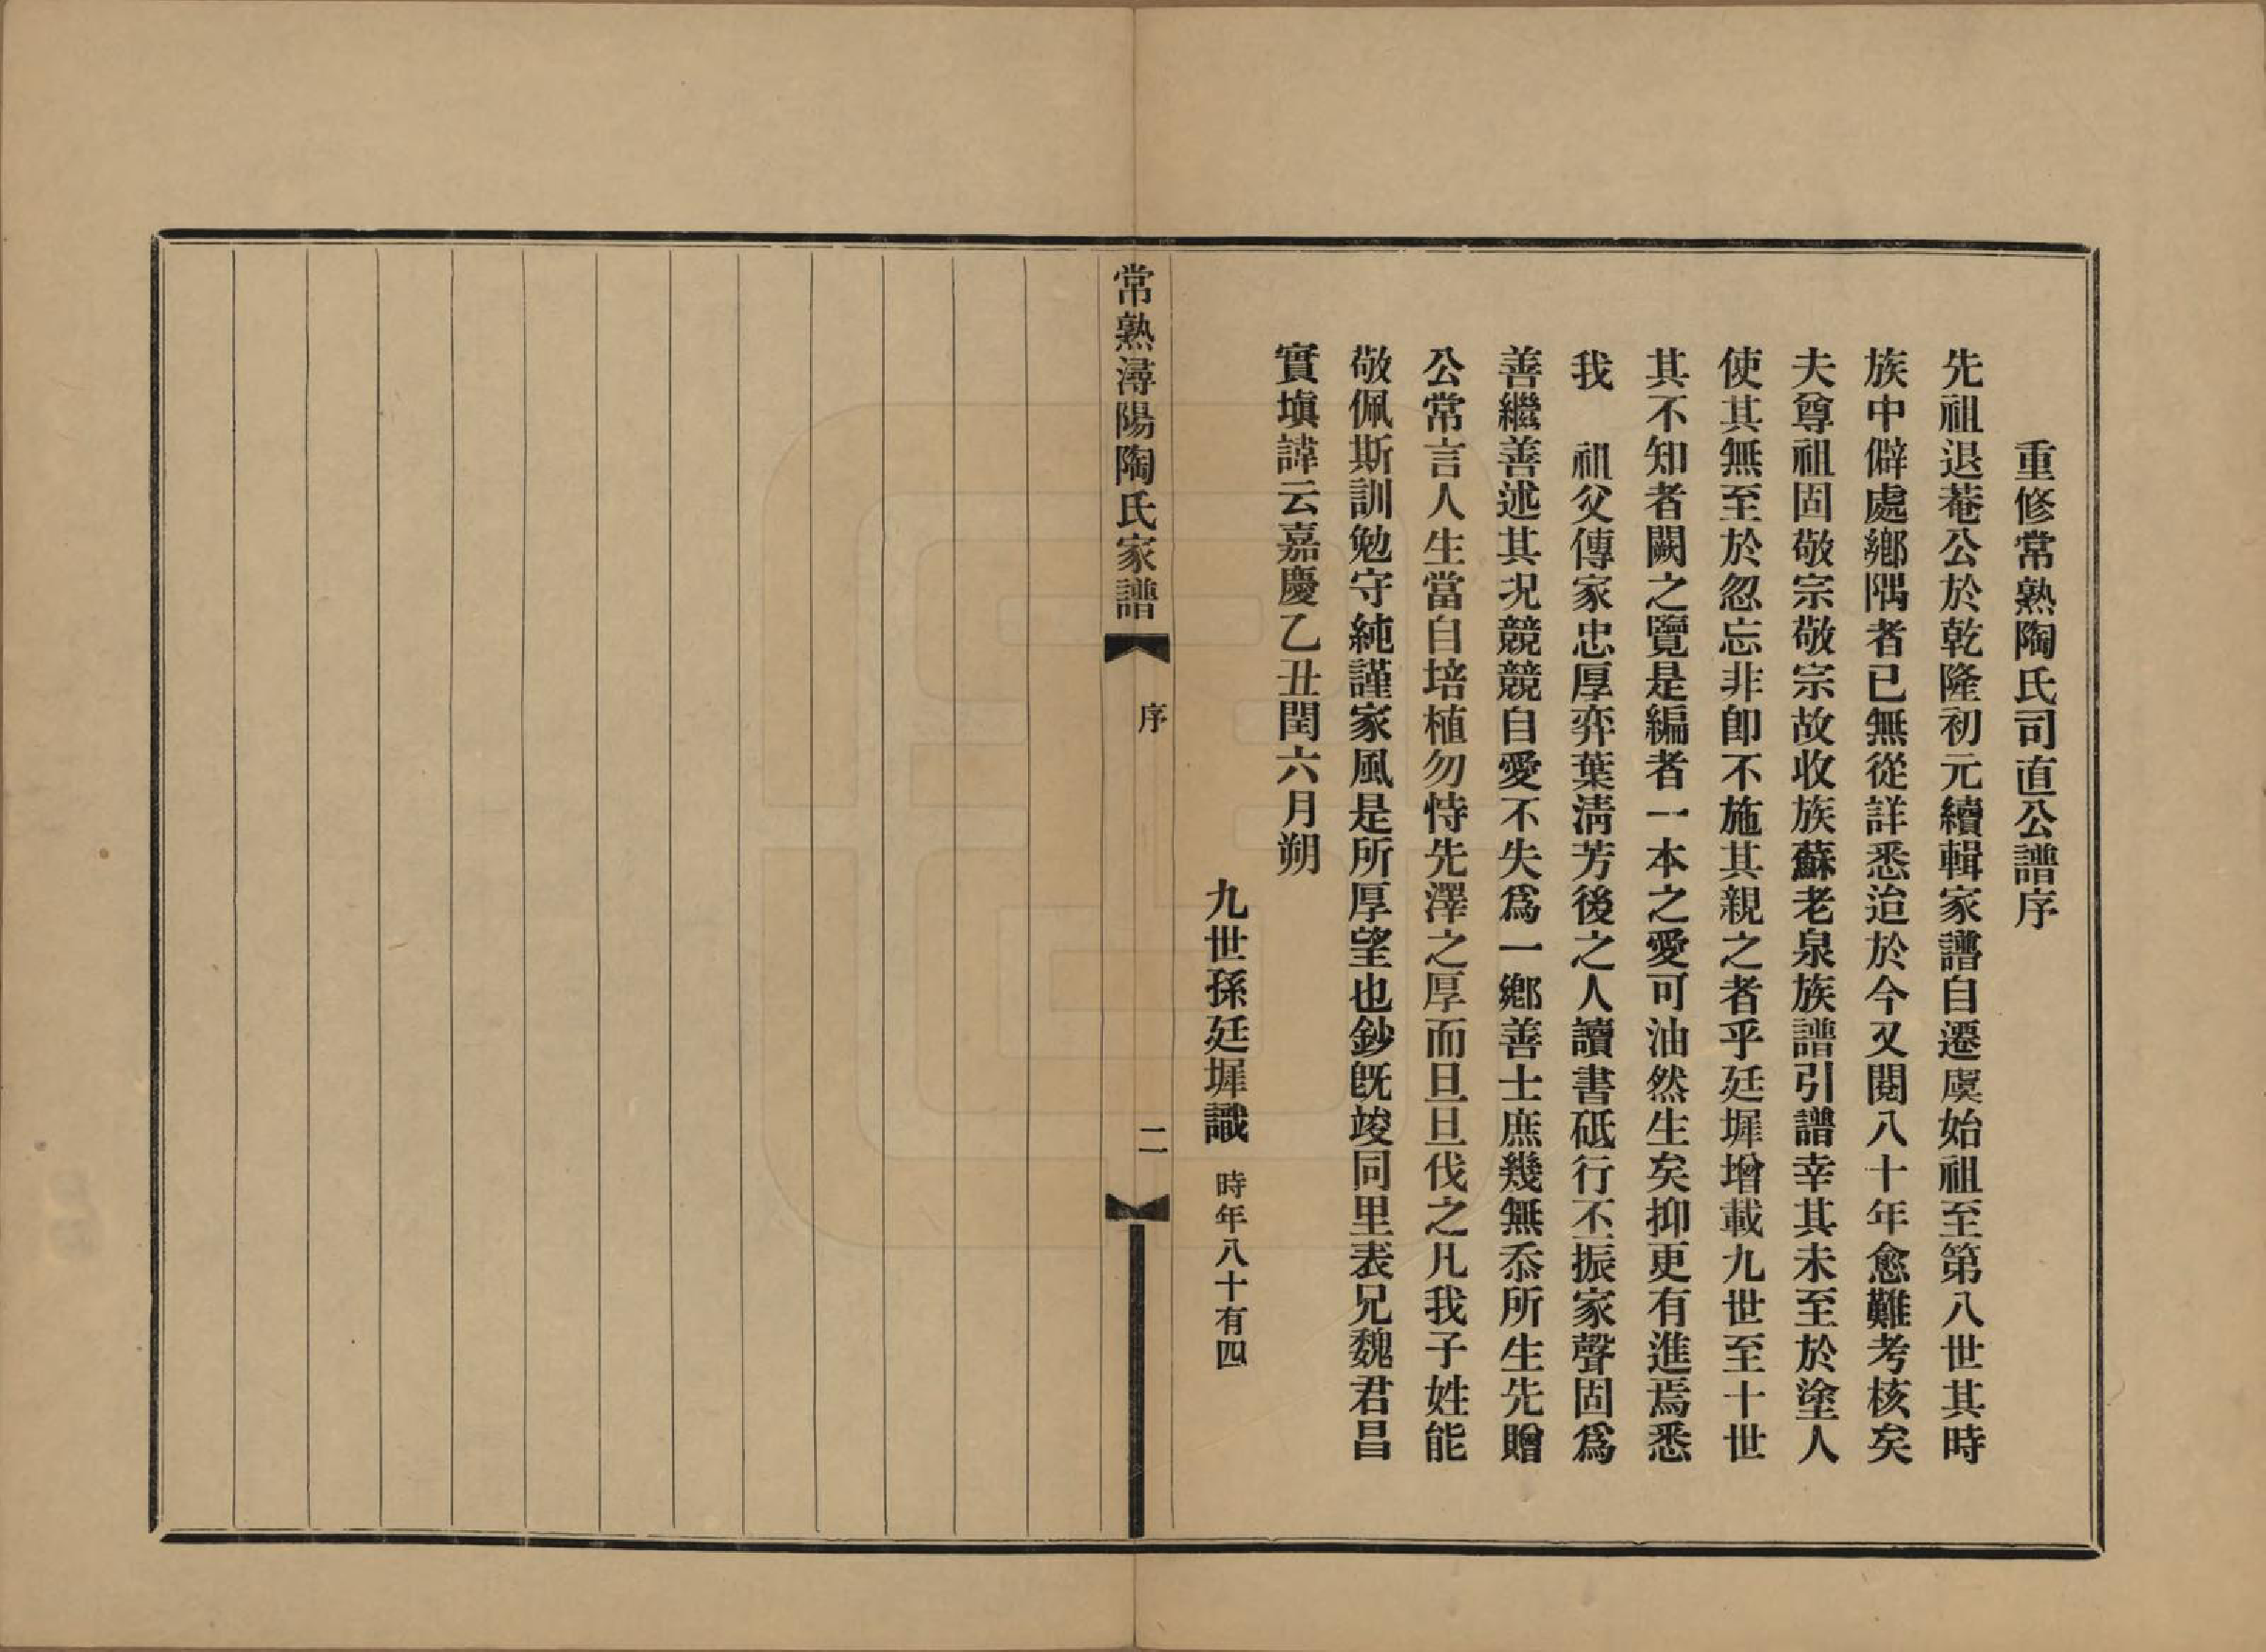 重修常熟陶氏司直公譜序
先祖退菴公於乾隆初元續輯家譜自遷虞始祖至第八世其時
族中僻處鄉隅者已無從詳悉迨於今又閱八十年愈難考核矣
夫尊祖固敬宗敬宗故收族蘇老泉族譜引譜幸其未至於塗人
使其無至於忽忘非卽不施其親之者乎廷墀增載九世至十世
其不知者闕之覽是編者一本之愛可油然生矣抑更有進焉悉
我　祖父傳家忠厚弈葉清芳後之人讀書砥行丕振家聲固爲
善繼善述其况競競自愛不失爲一鄉善士庶幾無忝所生先贈
公常言人生當自培植勿恃先澤之厚而旦旦伐之凡我子姓能
敬佩斯訓勉守純謹家風是所厚望也鈔旣竣同里表兄魏君昌
實塡諱云嘉慶乙丑閏六月朔
九世孫廷墀識　時年八十有四
常熟潯陽陶氏家譜　序　二